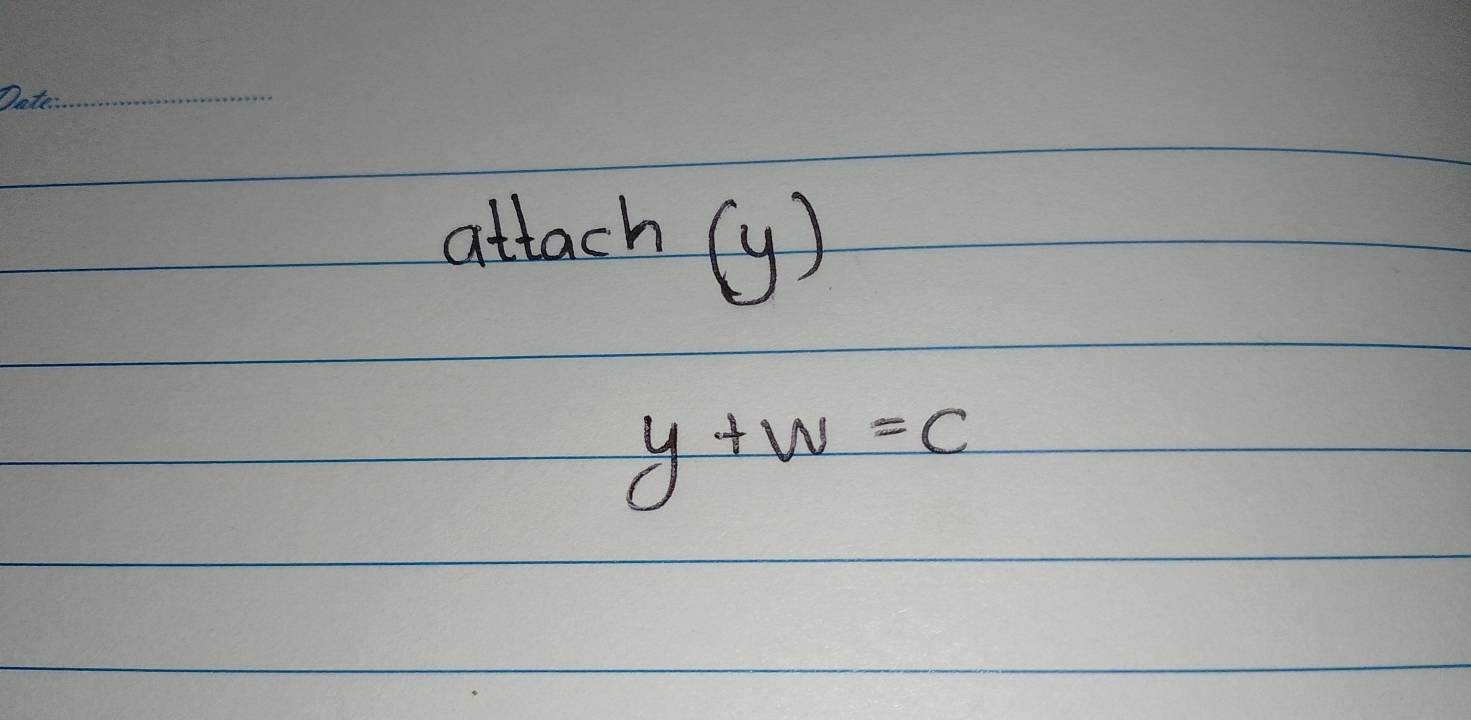 Date:
attach (y)
y + w = c